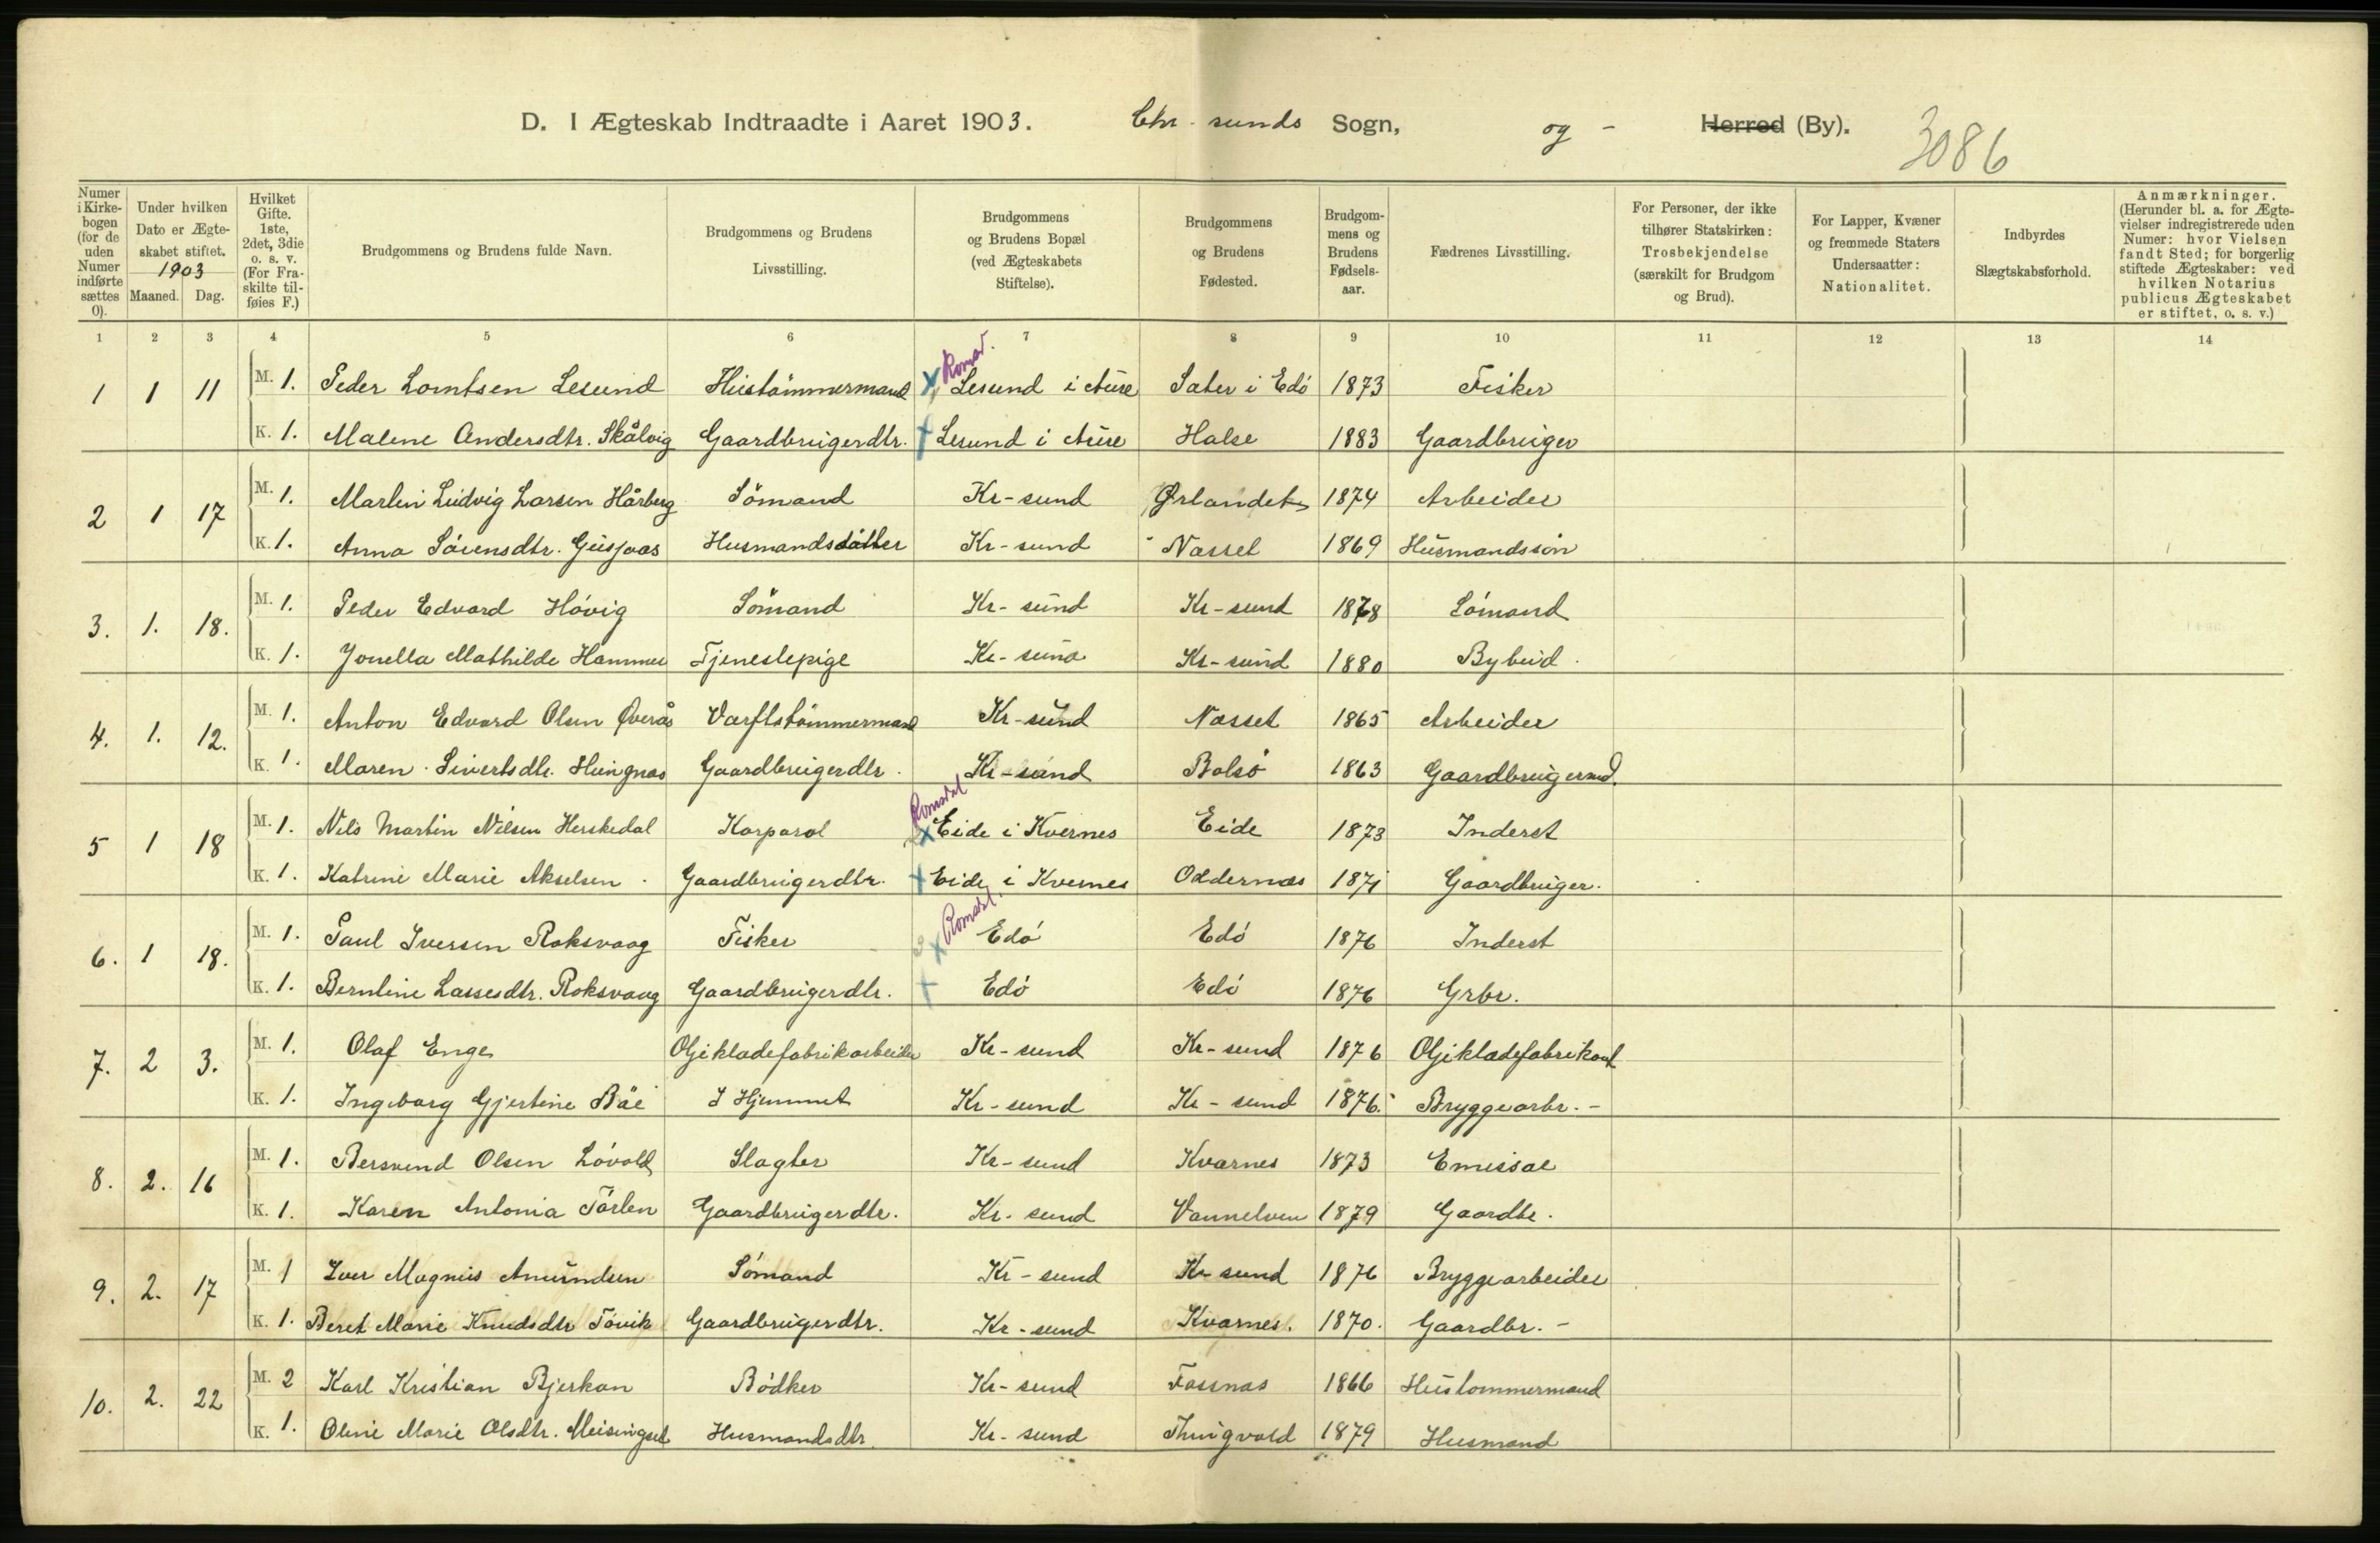 D. I Ægteskab Indtraadte i Aaret 1903. Chr-sunds Sogn, og - Herred (By). 3086
Numer i Kirkebogen (for de uden Numer indførte sættes 0).
Under hvilken Dato er Ægteskabet stiftet. 1903 Maaned. Dag.
Hvilket Gifte. 1ste, 2det, 3die o. s. v. (For Fraskilte tilføies F.)
Brudgommens og Brudens fulde Navn.
Brudgommens og Brudens Livsstilling.
Brudgommens og Brudens Bopæl (ved Ægteskabets Stiftelse).
Brudgommens og Brudens Fødested.
Brudgommens og Brudens Fødselsaar.
Fædrenes Livsstilling.
For Personer, der ikke tilhører Statskirken: Trosbekjendelse (særskilt for Brudgom og Brud).
For Lapper, Kvæner og fremmede Staters Undersaatter: Nationalitet.
Indbyrdes Slægtskabsforhold.
Anmærkninger. (Herunder bl. a. for Ægtevielser indregistrerede uden Numer: hvor Vielsen fandt Sted; for borgerlig stiftede Ægteskaber: ved hvilken Notarius publicus Ægteskabet er stiftet, o. s. v.)
1 2 3 4 5 6 7 8 9 10 11 12 13 14
Romsd.
1 1 11 M. 1. Peder Lorntsen Lesund Hustömmermand x Lesund i Aure Sater i Edö 1873 Fisker
K. 1. Malene Andersdtr. Skålvig Gaardbrugerdtr. + Lesund i Aure Halse 1883 Gaardbruger
2 1 17 M. 1. Martin Ludvig Larsen Hårberg Sömand Kr-sund Ørlandet 1874 Arbeider
K. 1. Anna Sörensdtr. Gusjaas Husmandsdatter Kr-sund Næsset 1869 Husmandssön
3. 1. 18. M. 1. Peder Edvard Hövig Sömand Kr-sund Kr-sund 1878 Sömand
K. 1. Jonella Mathilde Hammer Tjenestepige Kr-sund Kr-sund 1880 Bybud.
4. 1. 12. M. 1. Anton Edvard Olsen Øverås Værftstömmermand Kr-sund Næsset 1865 Arbeider
K. 1. Maren Sivertsdtr. Hungnæs Gaardbrugerdtr. Kr-sund Bolsö 1863 Gaardbrugersmd.
Romsdal
5 1 18 M. 1. Nils Martin Nilsen Herskedal Korporal x Eide i Kvernes Eide 1873 Inderst
K. 1. Katrine Marie Akselsen. Gaardbrugerdtr. + Eide i Kvernes Oddernæs 1871 Gaardbruger.
Romsdal.
6. 1 18. M. 1. Paul Iversen Roksvaag Fisker x Edö Edö 1876 Inderst
K. 1. Berntine Lassesdtr. Roksvaag Gaardbrugerdtr. + Edö Edö 1876 Grbr.
7. 2 3. M. 1. Olaf Enge Oljeklædefabrikarbeider Kr-sund Kr-sund 1876 Oljeklædefabrikant
K. 1. Ingeborg Gjertine Båe I Hjemmet Kr-sund Kr-sund 1876. Bryggearbr. -
8. 2. 16 M. 1. Bersvend Olsen Lövold Slagter Kr-sund Kværnes 1873 Emissær
K. 1. Karen Antonia Törlen Gaardbrugerdtr. Kr-sund Vannelven 1879 Gaardbr.
9. 2. 17 M. 1 Iver Magnus Amundsen Sömand Kr-sund Kr-sund 1876 Bryggearbeider
K. 1. Beret Marie Knudsdtr Tövik Gaardbrugerdtr. Kr-sund Kværnes. 1870. Gaardbr. -
10. 2. 22 M. 2 Karl Kristian Bjerkan Bödker Kr-sund Fossnæs 1866 Hustommermand
K. 1. Oline Marie Olsdtr. Meisingset Husmandsdtr. Kr-sund Thingvold 1879 Husmand